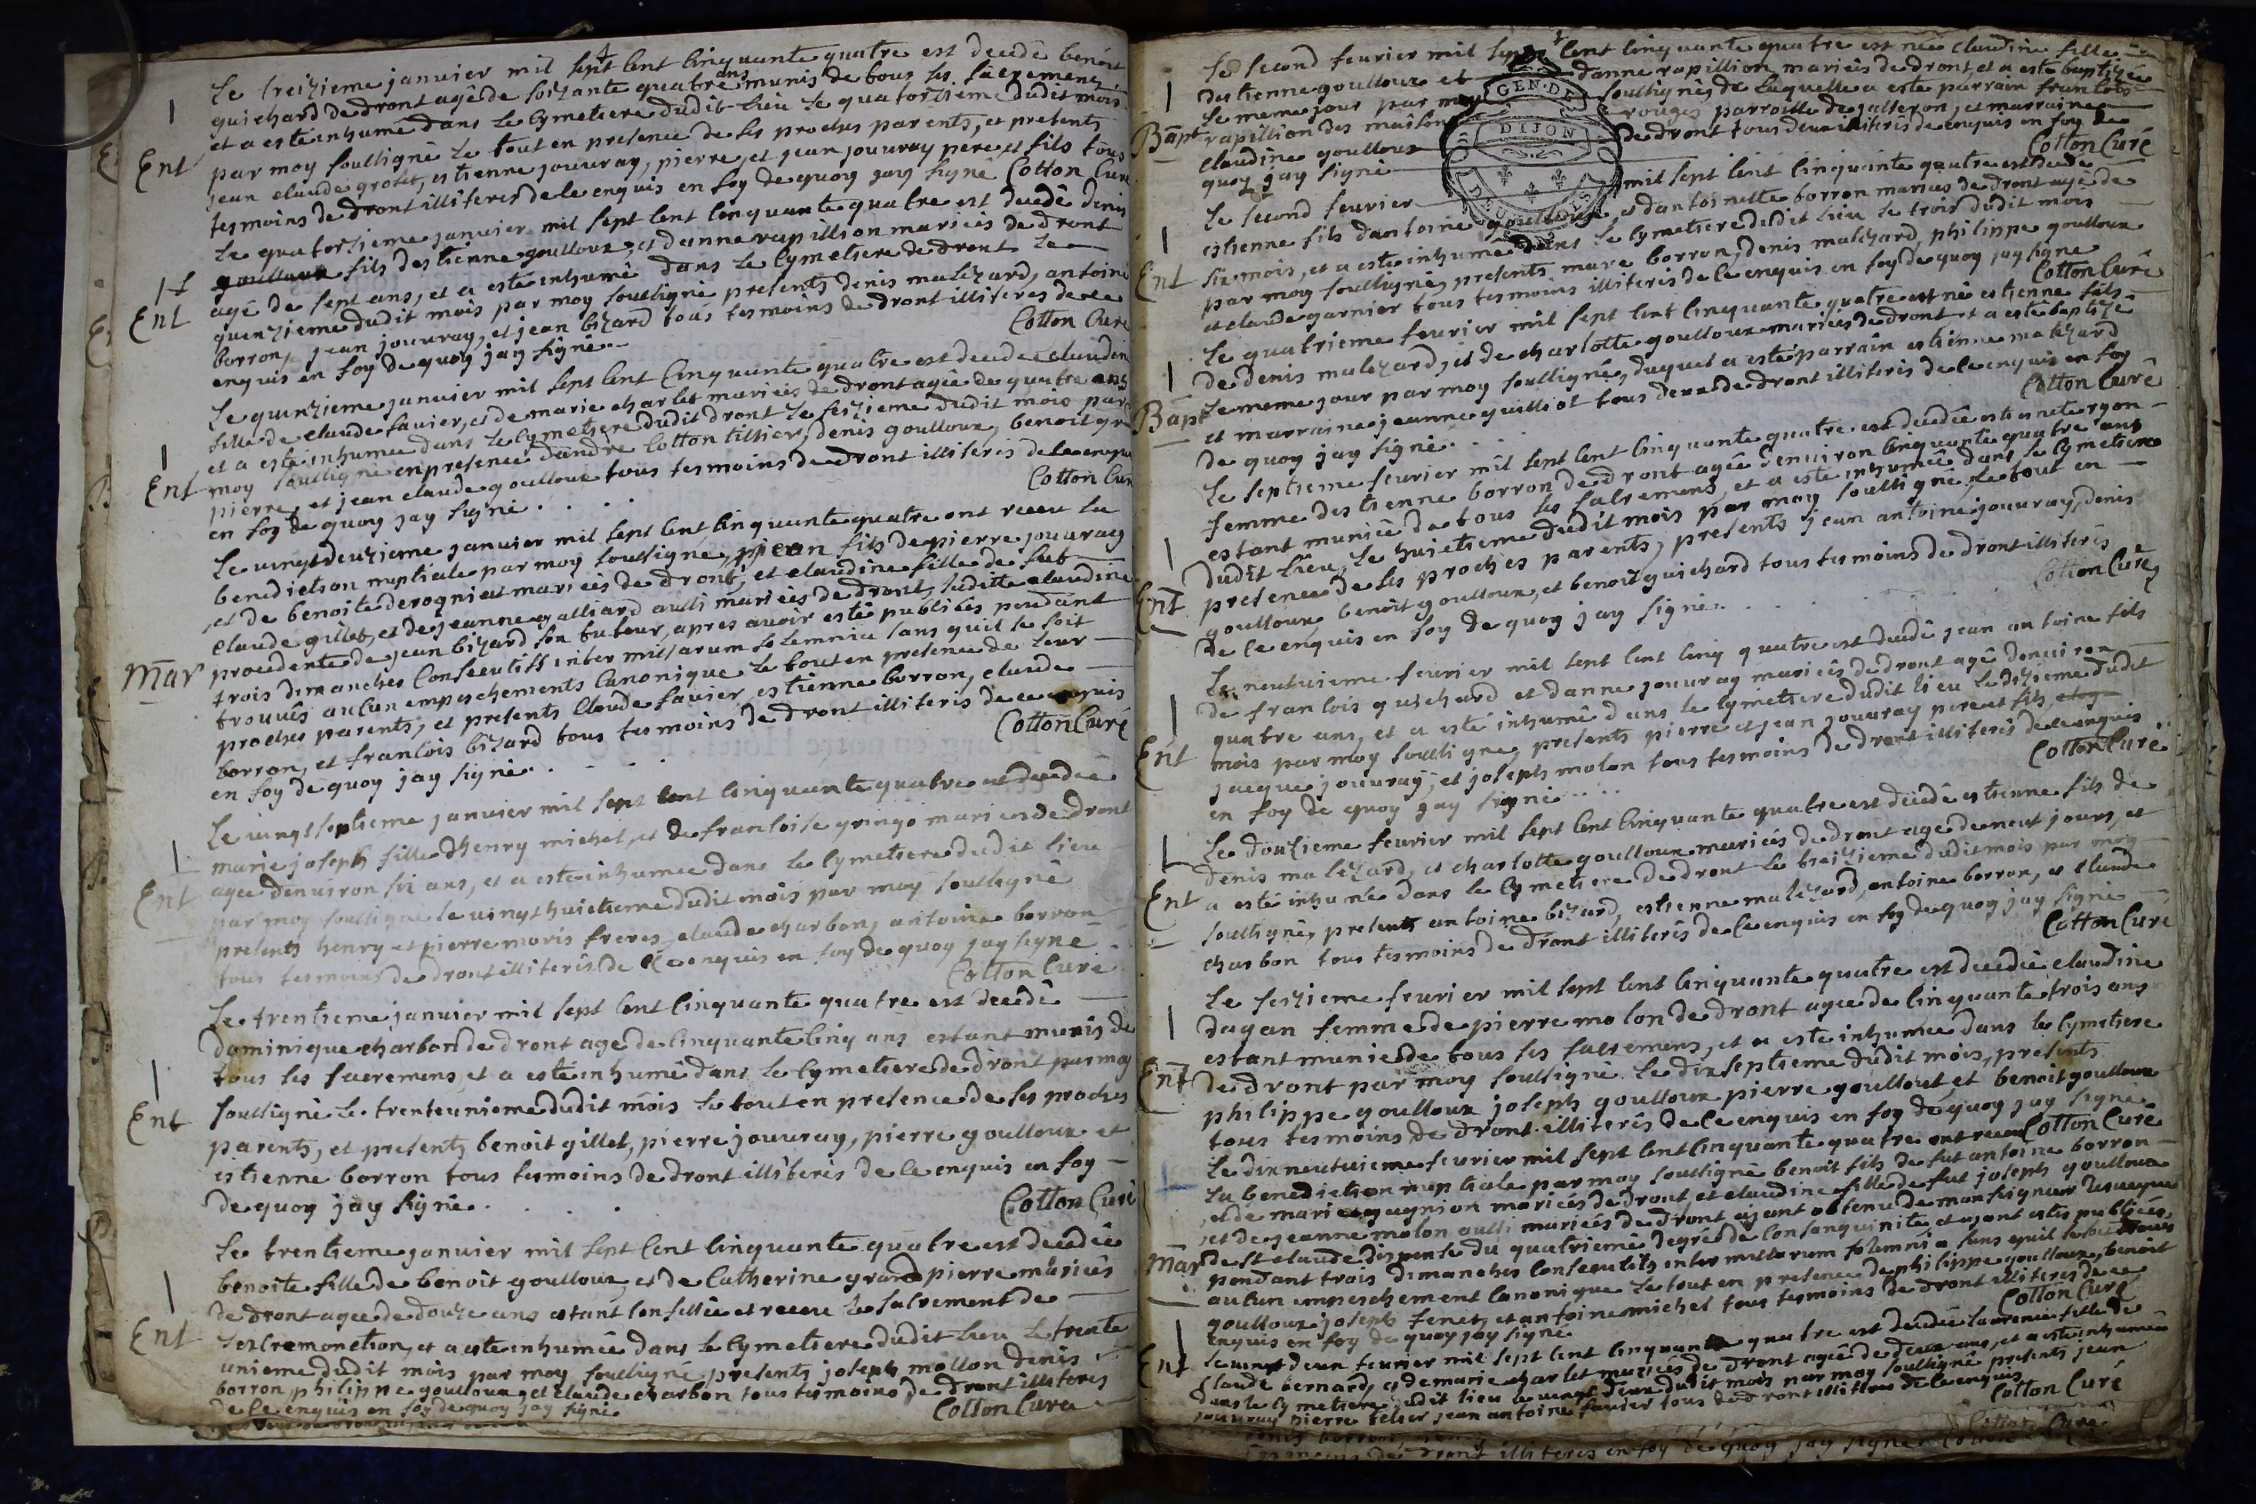 Le treizieme janvier mil sept cent cinquante quatre est decedé benoit
guichard de dront agé de soizante quatre ans munis de tous ses sacremens
et a esté inhumé dans le cymetiere dudit lieu le quatorzieme dudit mois
Ent par moy soussigné le tout en presence de ses proches parents, et presents
jean claude estienne jouuray, pierre et jean jouuray pere et fils tous
tesmoins de dront illiterés de ce enquis en foy de quoy jay signé Cotton Curé
Le quatorzieme janvier mil sept cent cinquante quatre est decedé denis
goulloux fils destienne goulloux, et danne rapillion mariées de dront
agé de sept ans, et a esté inhumé dans le cymetiere de dront le
Ent quinzieme dudit mois par moy soussigné presents denis malézard, antoine
borron, jean jouuray, et jean bizard tous tesmoins de dront illiteres de ce
enquis en foy de quoy jay signé Cotton Curé
Le quinzieme janvier mil sept cent cinquante quatre est decedée claudine
fille de claude fauier, et de marie charlet mariées de dront agée de quatre ans
et a esté inhumée dans le cymetiere dudit dront le seizieme dudit mois par
Ent moy soussigné en presence dandré Cotton tissier, denis goulloux, benoit
pierre, et jean claude goulloux tous tesmoins de dront illiterés de ce enquis
en foy de quoy jay signé Cotton Curé
Le uingt deuzieme janvier mil sept cent cinquante quatre ont receu la
benediction nuptiale par moy soussigné, jean fils de pierre jouuray
et de benoite derogniat mariées de dront, et claudine fille de fut
claude gillet, et de jeanne galliard aussi mariées de dront, laditte claudine
procedente de jean bizard son tuteur, apres auoir estés publiées pendant
Mar trois dimanches consecutifs inter missarum solemnia sans quil se soit
trouués aucun empeschements canonique le tout en presence de leur
proches parents, et presents claude fauier, estienne borron, claude
borron, et francois bizard tous tesmoins de dront illiteris de ce enquis
en foy de quoy jay signé Cotton Curé
Le uingt septieme janvier mil sept cent cinquante quatre est decedée
marie joseph fille dhenry michel, et de francoise gringo mariées de dront
agée denuiron six ans, et a esté inhumée dans le cymetiere dudit lieu
Ent par moy soussigné le uingt huictieme dudit mois par moy soussigné
presents henry et pierre moris freres, claude charbon, antoine borron
tous tesmoins de dront illiterés de ce enquis en foy de quoy jay signé
Cotton Curé
Le trentieme janvier mil sept cent cinquante quatre est decedé
dominique charbon de dront agé de cinquante cinq ans estant munis de
tous ses sacremens, et a esté inhumé dans le cymetiere de dront par moy
Ent soussigné le trente unieme dudit mois le tout en presence de ses proches
parents, et presents benoit gillet, pierre jouuray, pierre goulloux et
estienne borron tous tesmoins de dront illiteris de ce enquis en foy
de quoy jay signé Cotton Curé
Le trentieme janvier mil sept cent cinquante quatre est decedée
benoite fille de benoit goulloux, et de Catherine grand pierre mariées
de dront agée de douze ans estant confessée et receu le sacrement de
Ent lextremonction, et a esté inhumée dans le cymetiere dudit lieu le trente
unieme dudit mois par moy soussigné presents joseph mollon denis
borron, philippe goulloux, et claude charbon tous tesmoins de dront illiteres
de ce enquis en foy de quoy jay signé Cotton Curé
Le second feurier mil sept cent cinquante quatre est née claudine fille
destienne goulloux et danne rapillion mariées de dront, et a esté baptizée
le meme jour par moy soussigné, de laquelle a esté parrain francois
Bapt rapillion des maisons rouges parroisse de, et marraine
claudine goulloux de dront tous deux illiterés de ce enquis en foy de
quoy jay signé Cotton Curé
GEN. DE DIJON
Le second feurier mil sept cent cinquante quatre est decedé
estienne fils dantoine goulloux, et dantoinette borron mariées de dront agé de
six mois, et a esté inhumé dans le cymetiere dudit lieu le trois dudit mois
Ent par moy soussigné, presents marc borron, denis malézard, philippe goulloux
et claude garnier tous tesmoins illiterés de ce enquis en foy de quoy jay signé
Cotton Curé
Le quatrieme feurier mil sept cent cinquante quatre est né estienne fils
de denis malézard, et de charlotte goulloux mariées de dront et a esté baptizé
Bapt le meme jour par moy soussigné, duquel a esté parrain estienne malézard
et marraine jeanne guilliot tous deux de dront illiteris de ce enquis en foy
de quoy jay signé Cotton Curé
Le septieme feurier mil sept cent cinquante quatre est decedée estiennette ryon
femme destienne borron de dront agée denuiron cinquante quatre ans
estant muniée de tous ses sacremens, et a esté inhumée dans le cymetiere
dudit lieu le huictieme dudit mois par moy soussigné, le tout en
Ent presence de ses proches parents, presents jean antoine jouuray, denis
goulloux benoit goulloux, et benoit guichard tous tesmoins de dront illiterés
de ce enquis en foy de quoy jay signé Cotton Curé
Le neufuieme feurier mil sept cent cinq quatre est decedé jean antoine fils
de francois guichard et danne jouuray mariées de dront agé denuiron
quatre ans, et a esté inhumé dans le cymetiere dudit lieu le dizieme dudit
Ent mois par moy soussigné, presents pierre et jean jouuray pere et fils,
jacque jouuray, et joseph molon tous tesmoins de dront illiterés de ce enquis
en foy de quoy jay signé Cotton Curé
Le douzieme feurier mil sept cent cinquante quatre est decedé estienne fils de
denis malézard, et charlotte goulloux mariées de dront agé de neuf jours, et
Ent a esté inhumé dans le cymetiere de dront le treizieme dudit mois par moy
soussigné, presents antoine bizard, estienne malézard, antoine borron, et claude
charbon tous tesmoins de dront illiterés de ce enquis en foy de quoy jay signé
Cotton Curé
Le seizieme feurier mil sept cent cinquante quatre est decedée claudine
dagan femme de pierre molon de dront agée de cinquante trois ans
estant muniée de tous ses sacremens, et a esté inhumée dans le cymetiere
Ent de dront par moy soussigné le dix septieme dudit mois, presents
philippe goulloux joseph goulloux pierre goulloux et benoit goulloux
tous tesmoins de dront illiterés de ce enquis en foy de quoy jay signé
Cotton Curé
Le dix neufuieme feurier mil sept cent cinquante quatre ont receu
la benediction nuptiale par moy soussigné benoit fils de fut antoine borron
et de marie mariées de dront et claudine fille de fut joseph goulloux
et de jeanne molon aussi mariées de dront ayant obtenu de monseigneur
Mar de St claude dispense du quatrieme degrée de consanguinité, et ayant estés publiées
pendant trois dimanches consecutifs inter missarum solemnia sans quil se soit trouué
aucun empeschement canonique le tout en presence de philippe goulloux, benoit
goulloux joseph fenet, et antoine michel tous tesmoins de dront illiteres de ce
enquis en foy de quoy jay signé Cotton Curé
Le uingt deux feurier mil sept cent cinquante quatre est decedée laurence fille de
Ent Claude bernard, et de marie charlet mariées de dront agée de deux ans, et a esté inhumée
dans le cymetiere dudit lieu le uingt deux dudit mois par moy soussigné presents jean
jouuray pierre jean antoine fauier tous de dront illiteres de ce enquis
Cotton Curé
de dront illiteres en foy de quoy jay signé Cotton Curé